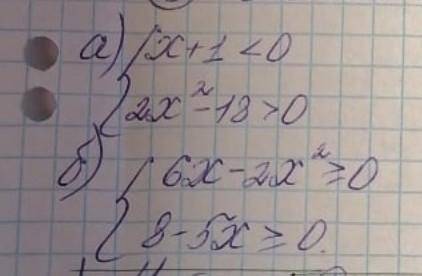 а) { x+1<0
2x²-18>0
б) { 6x-2x²≥0
8-5x≥0.